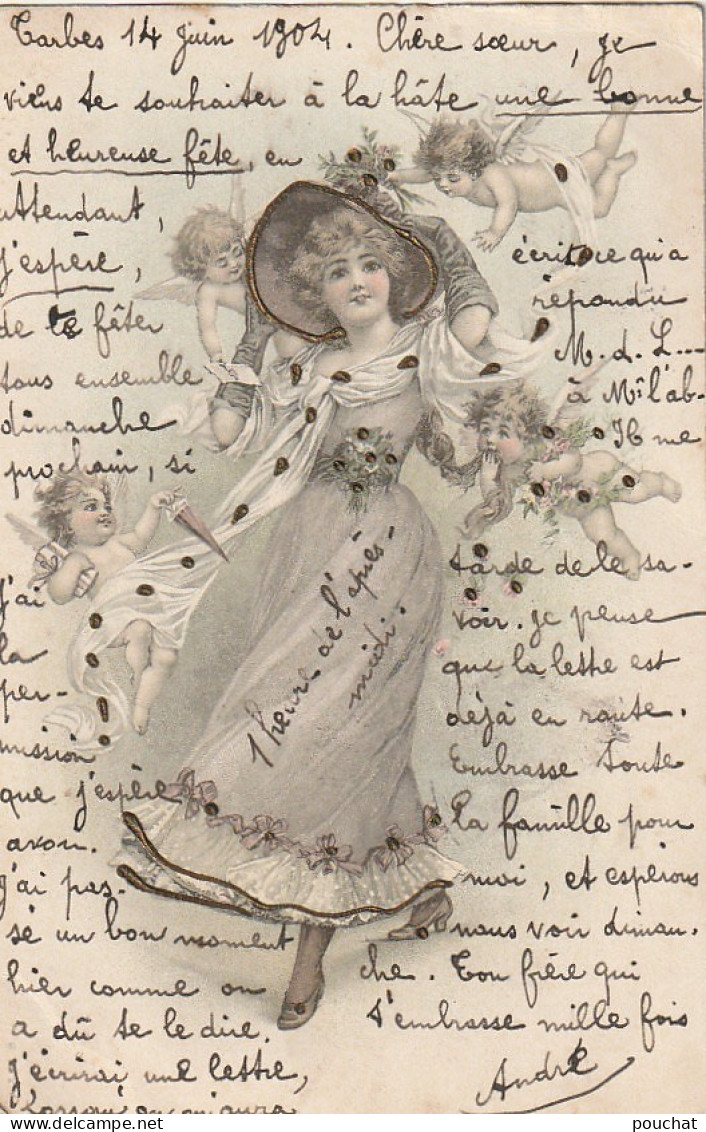 Tarbes 14 Juin 1904. Chère sœur, je
viens te souhaiter à la hâte une bonne
et heureuse fête, en
attendant,
j'espère,
de te fêter
tous ensemble
dimanche
prochain, si
j'ai
la
per-
mission
que j'espère
avoir.
J'ai pas-
sé un bon moment
hier comme on
a dû te le dire.
J'écrirai une lettre,
Lorsqu'on m'aura
écrit ce qu'a
répondu
M. d. L....
à Mr l'ab-
Il me
tarde de le sa-
voir. Je pense
que la lettre est
déjà en route.
Embrasse toute
la famille pour
moi, et espérons
nous voir diman-
che. Ton frère qui
t'embrasse mille fois
André
1 heure de l'après-
midi.
pouchat